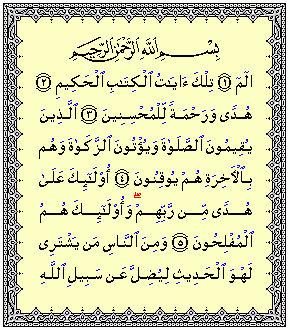 بِسْمِ ٱللَّهِ ٱلرَّحْمَٰنِ ٱلرَّحِيمِ
الٓمٓ ١ تِلْكَ ءَايَٰتُ ٱلْكِتَٰبِ ٱلْحَكِيمِ ٢
هُدًى وَرَحْمَةً لِّلْمُحْسِنِينَ ٣ ٱلَّذِينَ
يُقِيمُونَ ٱلصَّلَوٰةَ وَيُؤْتُونَ ٱلزَّكَوٰةَ وَهُم
بِٱلْأَخِرَةِ هُمْ يُوقِنُونَ ٤ أُوْلَٰٓئِكَ عَلَىٰ
هُدًى مِّن رَّبِّهِمْ ۖ وَأُوْلَٰٓئِكَ هُمُ
ٱلْمُفْلِحُونَ ٥ وَمِنَ ٱلنَّاسِ مَن يَشْتَرِى
لَهْوَ ٱلْحَدِيثِ لِيُضِلَّ عَن سَبِيلِ ٱللَّهِ